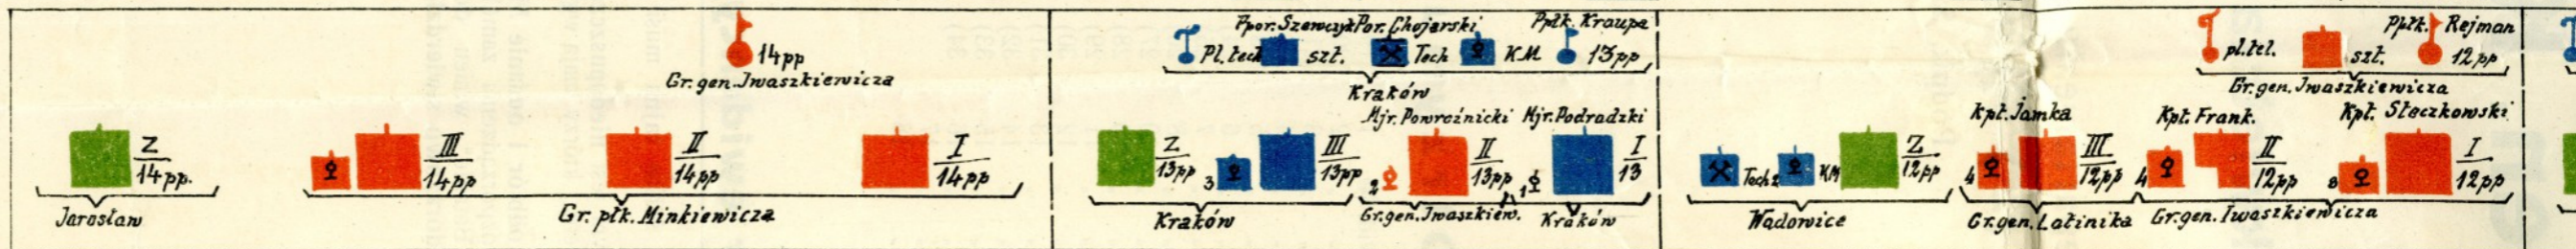 14pp
Gr. gen. Jwaszkiewicza
Z
14pp.
III
14pp
II
14pp
I
14pp
Jarosław
Gr. płk. Minkiewicza
Ppor. Szewczyk Por. Chojarski Ppłk. Kraupa
Pl. tech szt. Tech KM 13pp
Kraków
Mjr. Powroźnicki Mjr. Podradzki
Z
13pp
3
III
13pp
2
II
13pp
1
I
13
Kraków Gr. gen. Jwaszkiew. Kraków
Ppłk. Rejman
pl. tel. szt. 12pp
Gr. gen. Jwaszkiewicza
Kpt. Jamka Kpt. Frank. Kpt. Steczkowski
Tech KM
Z
12pp
4
III
12pp
4
II
12pp
8
I
12pp
Wadowice Gr. gen. Latinika Gr. gen. Iwaszkiewicza